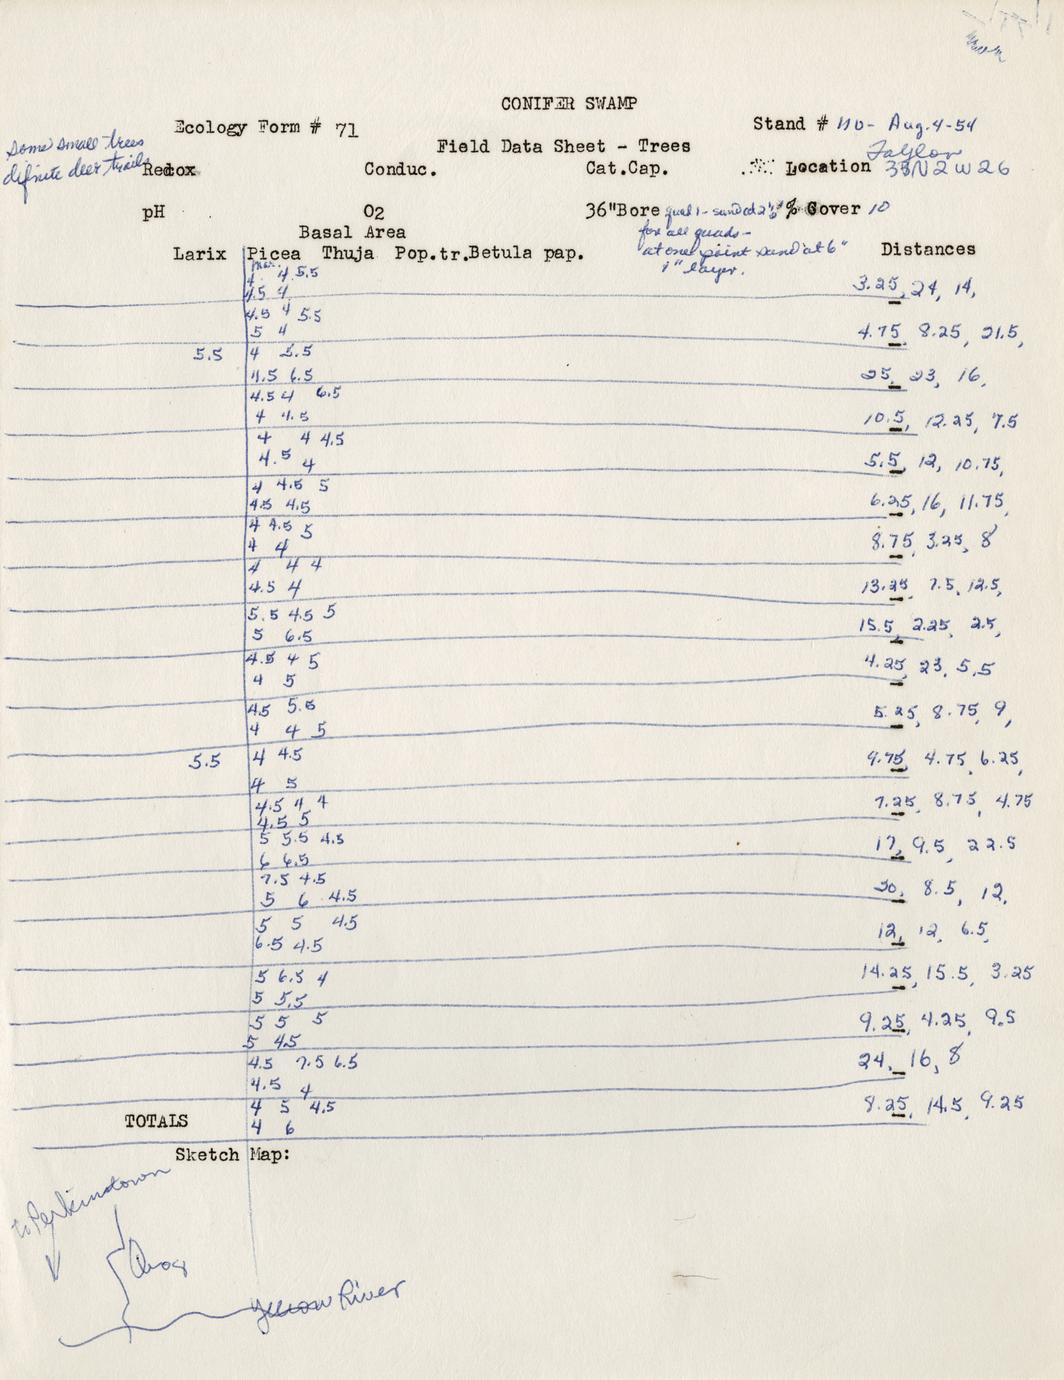 CONIFER SWAMP
Ecology Form # 71
Stand # 110- Aug. 4-54
some small trees
Field Data Sheet - Trees
Taylor
difinite deer trails
Redox Conduc. Cat.Cap. Location 33N 2W 26
pH O2 36"Bore quad 1- sand at 2½' % Cover 10
Basal Area
for all quads-
Larix Picea Thuja Pop.tr. Betula pap. Distances
at one point sand at 6"
1" layer.
mar.
4 4 5.5
4.5 4 3.25, 24, 14,
4.5 4 5.5
5 4 4.75, 8.25, 21.5,
5.5 4 5.5
4.5 6.5 25, 23, 16,
4.5 4 6.5
4 4.5 10.5, 12.25, 7.5
4 4 4.5
4.5 4 5.5, 12, 10.75,
4 4.5 5
4.5 4.5 6.25, 16, 11.75,
4 4.5 5
4 4 8.75, 3.25, 8
4 4 4
4.5 4 13.25, 7.5, 12.5,
5.5 4.5 5
5 6.5 15.5, 2.25, 2.5,
4.5 4 5
4 5 4.25, 23, 5.5
4.5 5.5
4 4 5 5.25, 8.75, 9,
5.5 4 4.5
4 5 9.75, 4.75, 6.25,
4.5 4 4
4.5 5 7.25, 8.75, 4.75
5 5.5 4.5
6 6.5 17, 9.5, 22.5
7.5 4.5
5 6 4.5 20, 8.5, 12,
5 5 4.5
6.5 4.5 12, 12, 6.5,
5 6.5 4
5 5.5 14.25, 15.5, 3.25
5 5 5
5 4.5 9.25, 4.25, 9.5
4.5 7.5 6.5
4.5 4 24, 16, 8
4 5 4.5
TOTALS 4 6 8.25, 14.5, 9.25
Sketch Map:
to Perkinstown
Yellow River